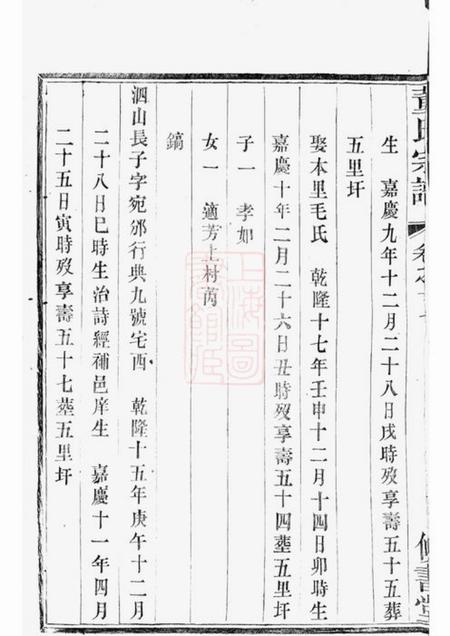 董氏宗譜
卷之
生 嘉慶九年十二月二十八日戌時歿享壽五十五葬
五里圩
娶本里毛氏 乾隆十七年壬申十二月十四日卯時生
嘉慶十年二月二十六日丑時歿享壽五十四塟五里圩
子一 孝如
女一 適芳上村芮
鎬
泗山長子字宛邠行典九號宅西 乾隆十五年庚午十二月
二十八日巳時生治詩經補邑庠生 嘉慶十一年四月
二十五日寅時歿享壽五十七塟五里圩
上海圖